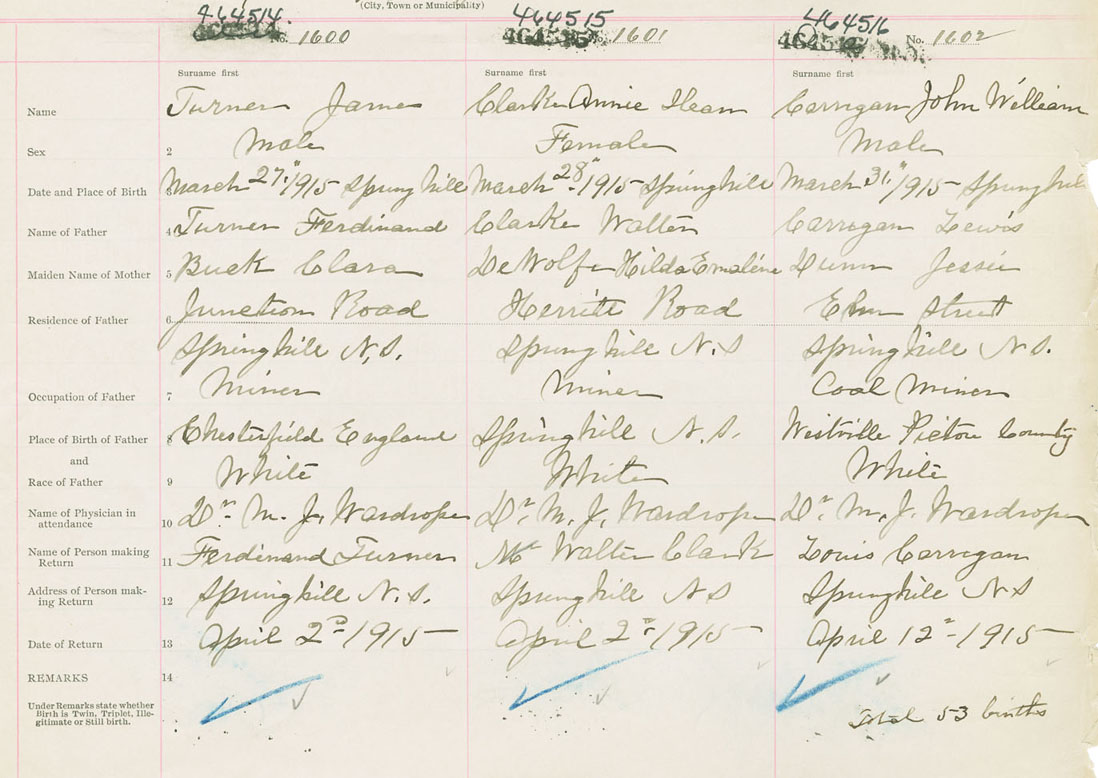 (City, Town or Municipality)
464514. 464515 464516
No. 1600 No. 1601 No. 1602
Surname first Surname first Surname first
Name Turner James Clarke Annie Carrigan John William
Sex 2 Male Female Male
Date and Place of Birth 3 March 27" 1915 Springhill March 28" 1915 Springhill March 31" 1915 Springhill
Name of Father 4 Turner Ferdinand Clarke Walter Carrigan Lewis
Maiden Name of Mother 5 Buck Clara DeWolfe Hilda Emaline Dunn Jessie
Residence of Father 6 Junction Road Herritt Road Elm Street
Springhill N.S. Springhill N.S Springhill N S.
Occupation of Father 7 Miner Miner Coal Miner
Place of Birth of Father 8 Chesterfield England Springhill N.S. Westville Pictou County
and
Race of Father 9 White White White
Name of Physician in
attendance 10 Dr. M. J. Wardrope Dr. M. J. Wardrope Dr. M. J. Wardrope
Name of Person making
Return 11 Ferdinand Turner Mr Walter Clark Louis Carrigan
Address of Person mak-
ing Return 12 Springhill N.S. Springhill N S Springhill N S
Date of Return 13 April 2nd 1915 April 2" 1915 April 12" 1915
REMARKS 14
Under Remarks state whether
Birth is Twin, Triplet, Ille-
gitimate or Still birth.
Total 53 births